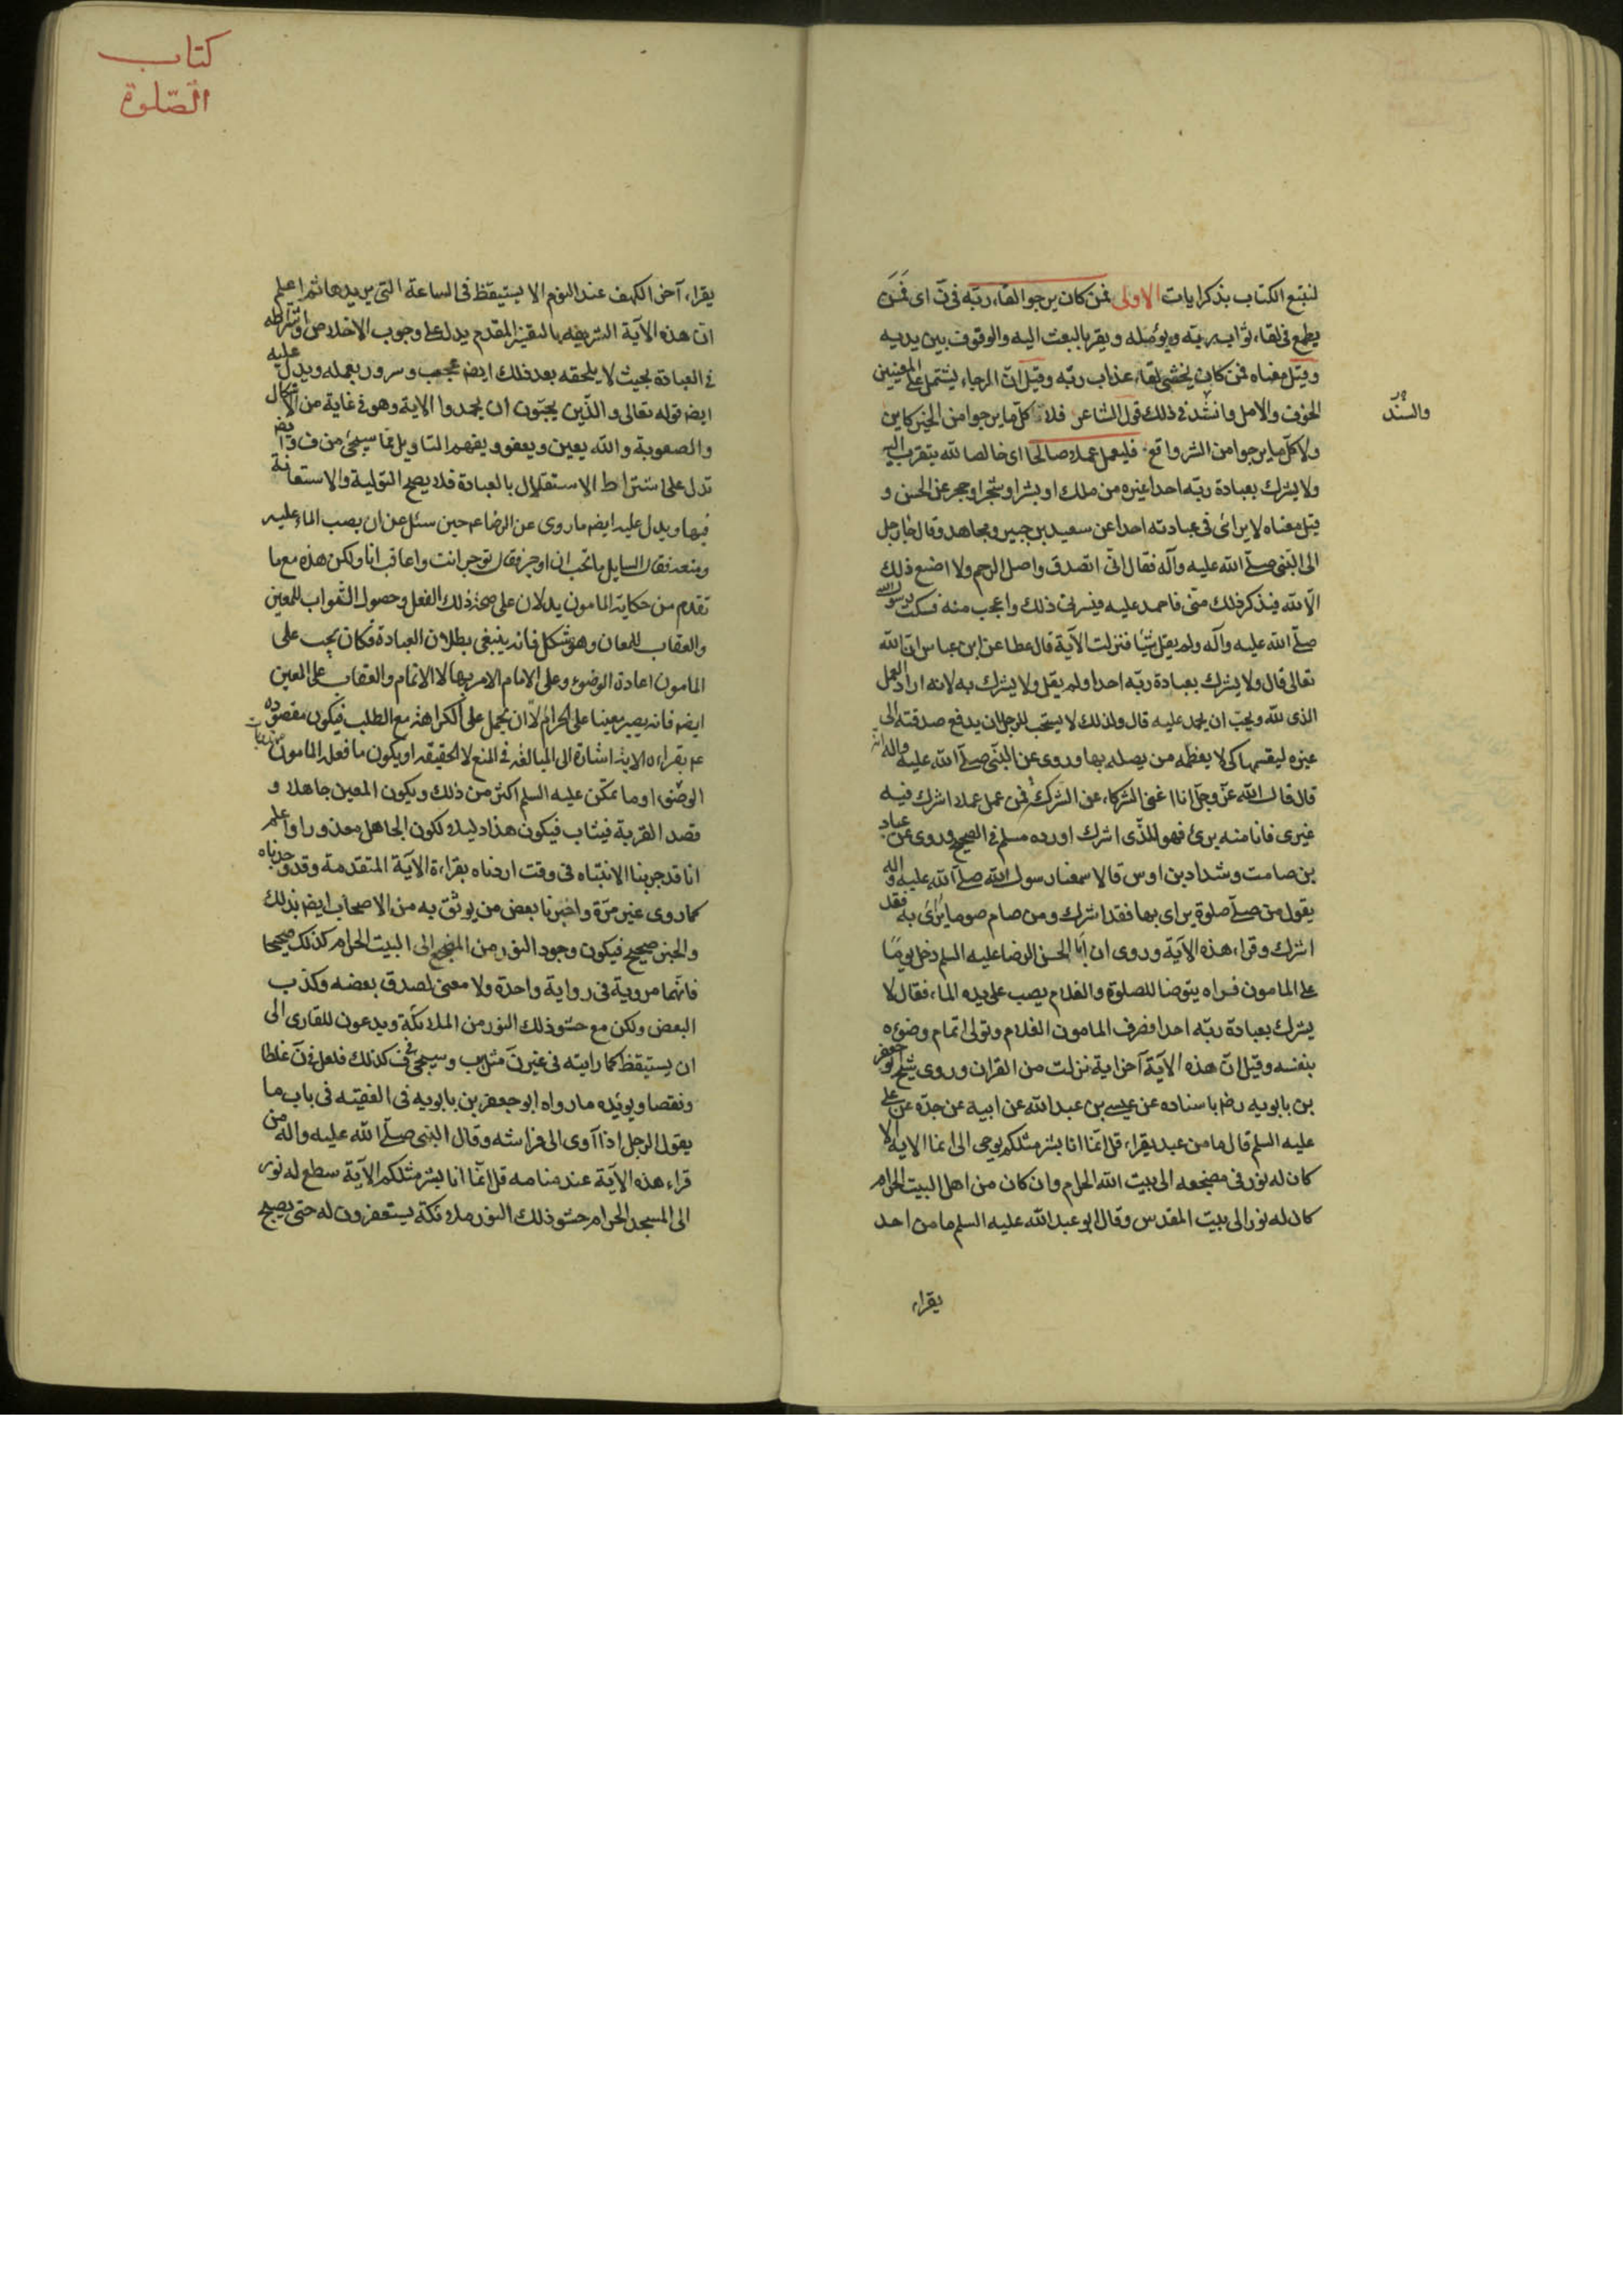 لنتبع الكتاب بذكر ايات الاولى فمن كان يرجوا لقاء ربّه فى نّ اى فَمَنَ
يطمع فى لقاء ثواب ربّه ويؤمّله ويقر بالبعث اليه والوقوف بين يديه
وقيل معناه فمن كان يخشى لقاء عذاب ربّه وقيل انّ الرجاء يشتمل على المعنيين
الخوف والامل وانشد فى ذلك قول الشاعر فلا كلّ ما يرجوا من الخير كاين
والسند
ولا كلّ ما يرجوا من الشر واقع فليعمل عملا صالحا اى خالصا لله يتقرب اليه
ولا يشرك بعبادة ربّه احدا غيره من ملك او بشر او شجر او حجر عن الحسن و
قيل معناه لا يرائى فى عبادته احدا عن سعيد بن جبير ومجاهد وقال جاء رجل
الى النّبى صلّى الله عليه وآله فقال انّى اتصدق واصل الرحم ولا اصنع ذلك
الّا لله فيذكر ذلك منّى فاحمد عليه فيسرنى ذلك واعجب منه فسكت رسول الله
صلّى الله عليه وآله ولم يقل شيئا فنزلت الآية قال عطا عن ابن عباس انّ الله
تعالى قال ولا يشرك بعبادة ربّه احدا ولم يقل ولا يشرك به لانه اراد العمل
الذى لله ويحبّ ان يحمد عليه قال ولذلك لا يستحب للرجل ان يدفع صدقته الى
غيره ليقسمها كى لا يعظّمه من يصله بها وروى عن النّبى صلّى الله عليه واله انه
قال قال الله عزّ وجلّ انا اغنى الشركاء عن الشرك فمن عمل عملا اشرك فيه
غيرى فانا منه برئ فهو للذّى اشرك اورده مسلم فى الصحيح وروى عن عباد
بن صامت وشداد بن اوس قالا سمعنا رسول الله صلّى الله عليه واله
يقول من صلّى صلوة يراى بها فقد اشرك ومن صام صوما يرائى به فقد
اشرك وقراء هذه الآية وروى ان ابا الحسن الرضا عليه السلم دخل يومًا
على المامون فراه يتوضا للصلوة والغلام يصب على يده الماء فقال لا
يشرك بعبادة ربّه احدا فصرف المامون الغلام وتولى اتمام وضوءه
بنفسه وقيل انّ هذه الآية آخر اية نزلت من القران وروى شيخ ابو جعفر
بن بابويه رضه باسناده عن عيسى بن عبد الله عن ابيه عن جدّه عن على
عليه السلم قال ما من عبد يقراء قل انّما انا بشر مثلكم يوحى الى انما الايه الا
كان له نور فى مضجعه الى بيت الله الحرام وان كان من اهل البيت الحرام
كان له نور الى بيت المقدس وقال ابو عبد الله عليه السلم ما من احد
يقراء
كتاب
الصّلوة
يقراء آخر الكهف عند النوم الا يستيقظ فى الساعة التى يريدها ثم اعلم
انّ هذه الآية الشريفه بالتفسير المقدم يدل على وجوب الاخلاص واشتراطه
فى العبادة بحيث لا يلحقه بعد ذلك ايضه عجب وسرور بعمله ويدل عليه
ايضه قوله تعالى والذّين يحبّون ان يحمدوا الاية وهو فى غاية من الاشكال
والصعوبة والله يعين ويعفو ويفهم التاويل ممّا سيجئ من ف وايضه
تدل على اشتراط الاستقلال بالعبادة فلا يصح التولية والاستعانة
فيها ويدل عليه ايضه ما روى عن الرضا عم حين سئل عن ان يصب الماء عليه
ومنعه فقال السايل ما تحب ان اوجر فقال توجر انت واعاقب انا ولكن هذه مع ما
تقدم من حكاية المامون يدلان على صحة ذلك الفعل وحصول الثواب للمعين
والعقاب للمعان وهو مشكل فانه ينبغى بطلان العبادة فكان يجب على
المامون اعادة الوضوء وعلى الامام الامر بها لا الاتمام والعقاب على المعين
ايضه فانه يصير معينا على الحرام الّا ان يحمل على الكراهة مع الطلب فيكون مقصوده
عم بقراءه الاية اشارة الى المبالغه فى المنع لا الحقيقه او يكون ما فعله المامون
الوضوء او ما تمكّن عليه السلم اكثر من ذلك ويكون المعين جاهلا و
قصد القربة فيثاب فيكون هذا دليلا لكون الجاهل معذورا واعلم
انا قد جربنا الانتباه فى وقت اردناه بقراءة الآية المتقدمة وقد وجدناه
كما روى غير مرّة واخبرنا بعض من يوثق به من الاصحاب ايضه بذلك
والخبر صحيح فيكون وجود النور من المضجع الى البيت الحرام كذلك صحيحا
فانهما مروية فى رواية واحدة ولا معنى لصدق بعضه وكذب
البعض ولكن مع حشو ذلك النور من الملائكة ويدعون للقارى الى
ان يستيقظ كما رايته فى غير نّ مثل يب وسيجئ فى ف كذلك فلعل فى نّ غلطا
ونقصا ويويّده ما رواه ابو جعفر بن بابويه فى الفقيه فى باب ما
يقول الرجل اذا آوى الى فراشه وقال النبى صلّى الله عليه واله من
قراء هذه الآية عند منامه قل انّما انا بشر مثلكم الآية سطع له نور
الى المسجد الحرام حشو ذلك النور ملائكة يستغفرون له حتى يصبح